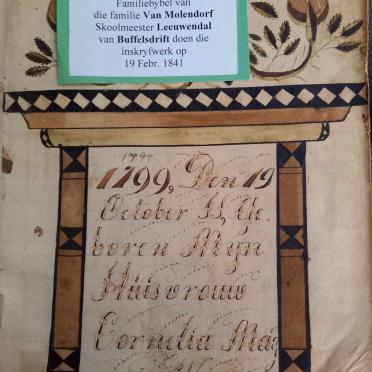 Familiebybel van
die familie Van Molendorf
Skoolmeester Leeuwendal
van Buffelsdrift doen die
inskryfwerk op
19 Febr. 1841
1799
1799, Den 19
October is, Ge
boren Myn
Huisvrouw
Cornelia Mag